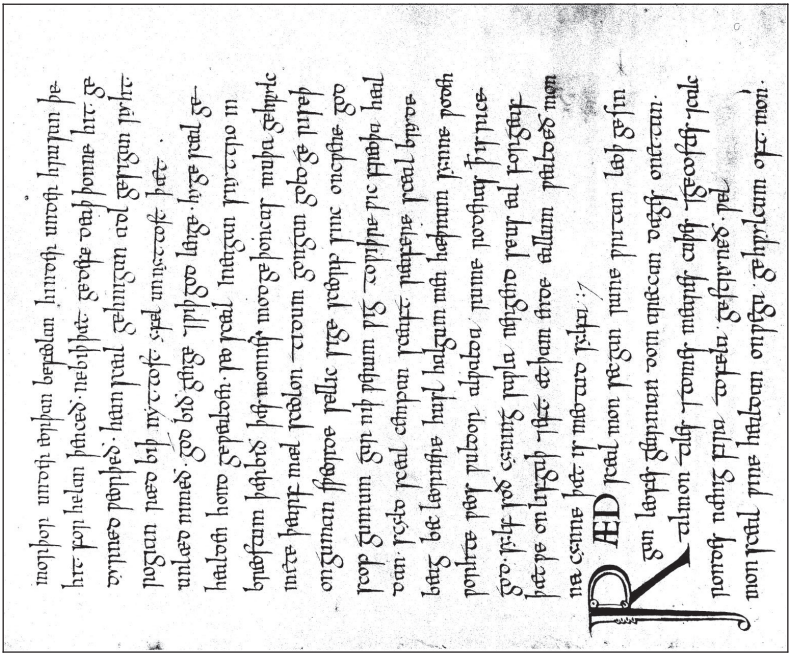 morþor under eorþan befeolan hinder under hrusan þe
hit for helan þenceð. ne biþ þæt gedefe deaþ þonne hit ge
dyrned ƿeorþeð. hean sceal gehnigan adl gesigan ryht
rogian ræd biþ nyttost yfel unnyttost þæt
unlæd nimeð. god bið genge ⁊ƿiþ god lenge. hyge sceal ge
healden hond geƿealden. seo sceal ineagan snyttro in
breostum þær bið þæs monnes mod geþoncas muþa gehƿylc
mete þearf mæl sceolon tidum gongan gold geriseþ
onguman sƿeorde sellic sige sceorp sinc oncƿene god
scop gumum gar niþ ƿerum ƿig toƿiþre ƿic freoþa heal
dan. scyld sceal cempan sceaft reafere sceal bryde
beag bec leornere husl halgum men hæþnum synne ƿoden
ƿorhte ƿeos ƿuldor alƿalda rume roderas ꝥ is rice
god. sylf soð cyning saƿla nergend se us eal forgeaf
þæt ƿe onlifgaþ ⁊eft ætþam ende eallum ƿealdeð mon
na cynne þæt is meotud sylfa :⁊
RÆD sceal mon secgan rune ƿritan leoþ gesin
gan lofes gearnian dom areccan dæges onettan.
til mon tiles ⁊tomes meares cuþes ⁊gecostes ⁊calc
rondes nænig fira tofela gestryneð. ƿel
mon sceal ƿine healdan onƿega gehƿylcum oft mon.